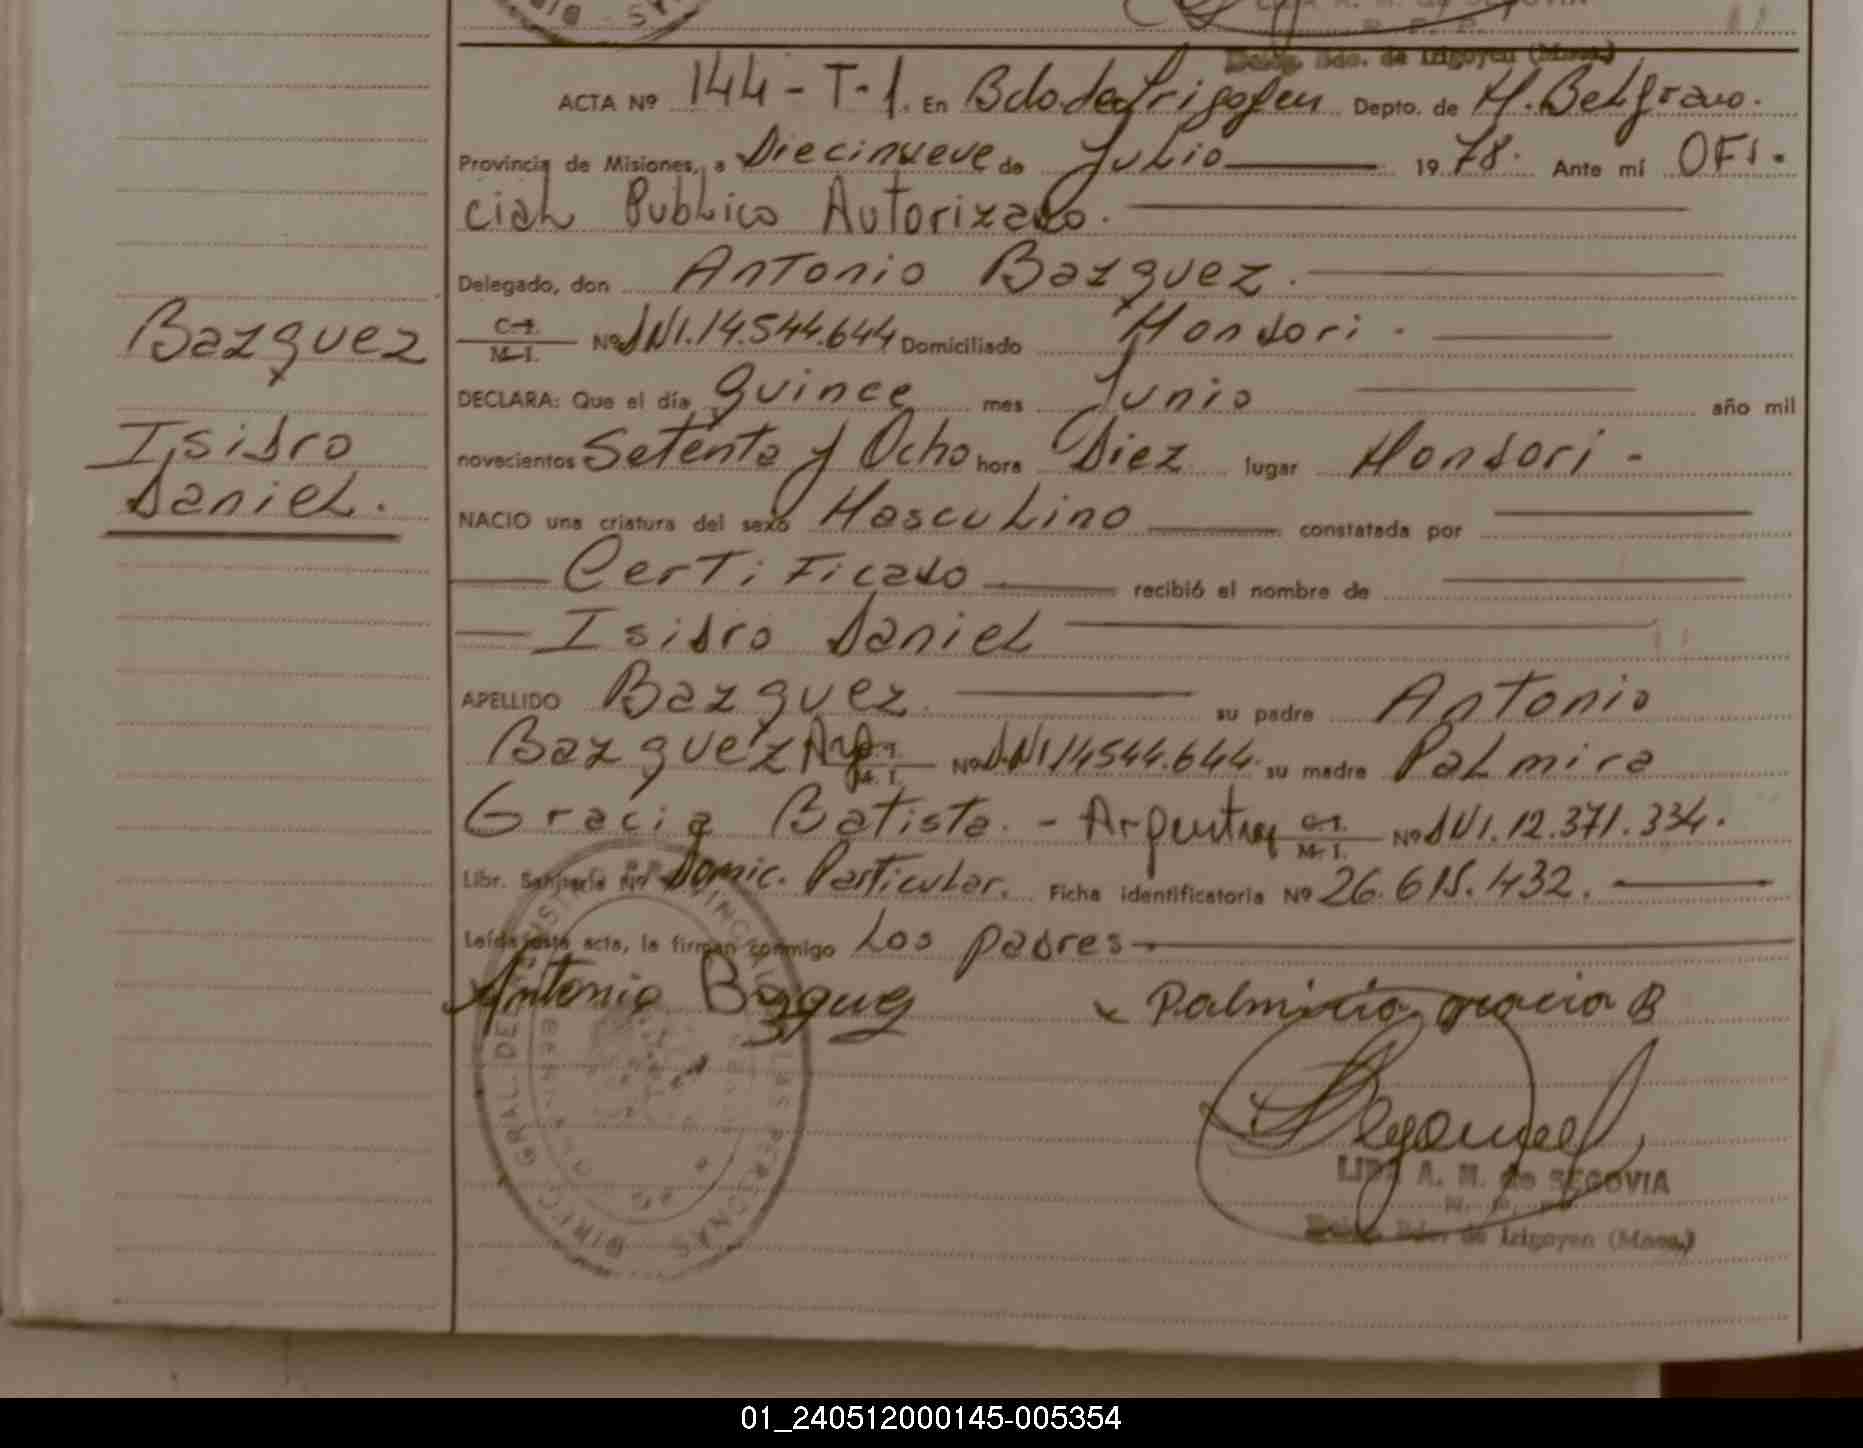 LIDA A. M. de SEGOVIA
Deleg. Bdo. de Irigoyen (Mnes.)
ACTA Nº 144 - T-1. En Bdo. de Irigoyen Depto. de M. Belgrano.
Provincia de Misiones, a Diecinueve de Julio 19 78. Ante mí OFI-
cial Publico Autorizado.
Delegado, don Antonio Bazquez.
C. I.
M. I. Nº DNI. 14.544.644 Domiciliado Mondori -
DECLARA: Que el día quince mes Junio año mil
novecientos Setenta y Ocho hora Diez lugar Mondori -
NACIO una criatura del sexo Masculino constatada por
Certificado recibió el nombre de
Isidro Daniel
APELLIDO Bazquez su padre Antonio
Bazquez Arg. C. I. M. I. Nº DNI 14544.644. su madre Palmira
Gracia Batista. - Argentina C. I. M. I. Nº DNI. 12.371.334.
Libr. Sanitaria Nº Domic. Particular. Ficha identificatoria Nº 26.615.432.
Leída esta acta, la firman conmigo Los padres
Antonio Bazquez x Palmiria gracia B
LIDA A. M. de SEGOVIA
Deleg. Bdo. de Irigoyen (Mnes.)
Bazquez
Isidro
Daniel.
DIREC. GRAL. DE REGISTRO PROVINCIAL DE LAS PERSONAS
01_240512000145-005354